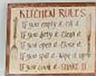 KITCHEN RULES
If you empty it fill it
If you dirty it clean it
If you open it close it
If you spill it wipe it up
If you cook it SHARE IT